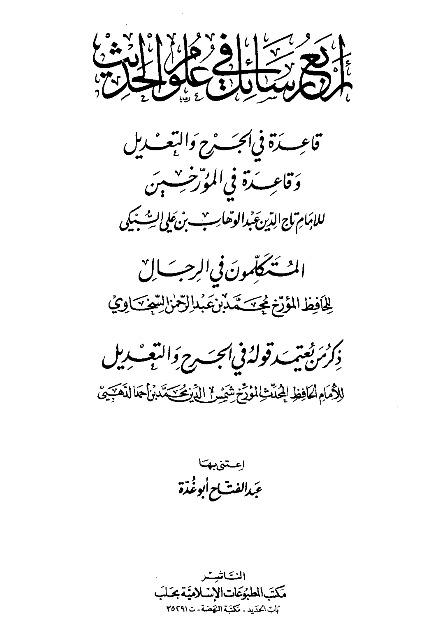 أربع رسائل في علوم الحديث
قاعدة في الجرح والتعديل
وقاعدة في المؤرخين
للإمام تاج الدين عبد الوهاب بن علي السبكي
المتكلمون في الرجال
للحافظ المؤرخ محمد بن عبد الرحمن السخاوي
ذكر من يعتمد قوله في الجرح والتعديل
للإمام الحافظ المحدث المؤرخ شمس الدين محمد بن احمد الذهبي
اعتنى بها
عبد الفتاح أبو غدة
الناشر
مكتب المطبوعات الإسلامية بحلب
باب الحديد - مكتبة النهضة - ت ٣٥٢٩١